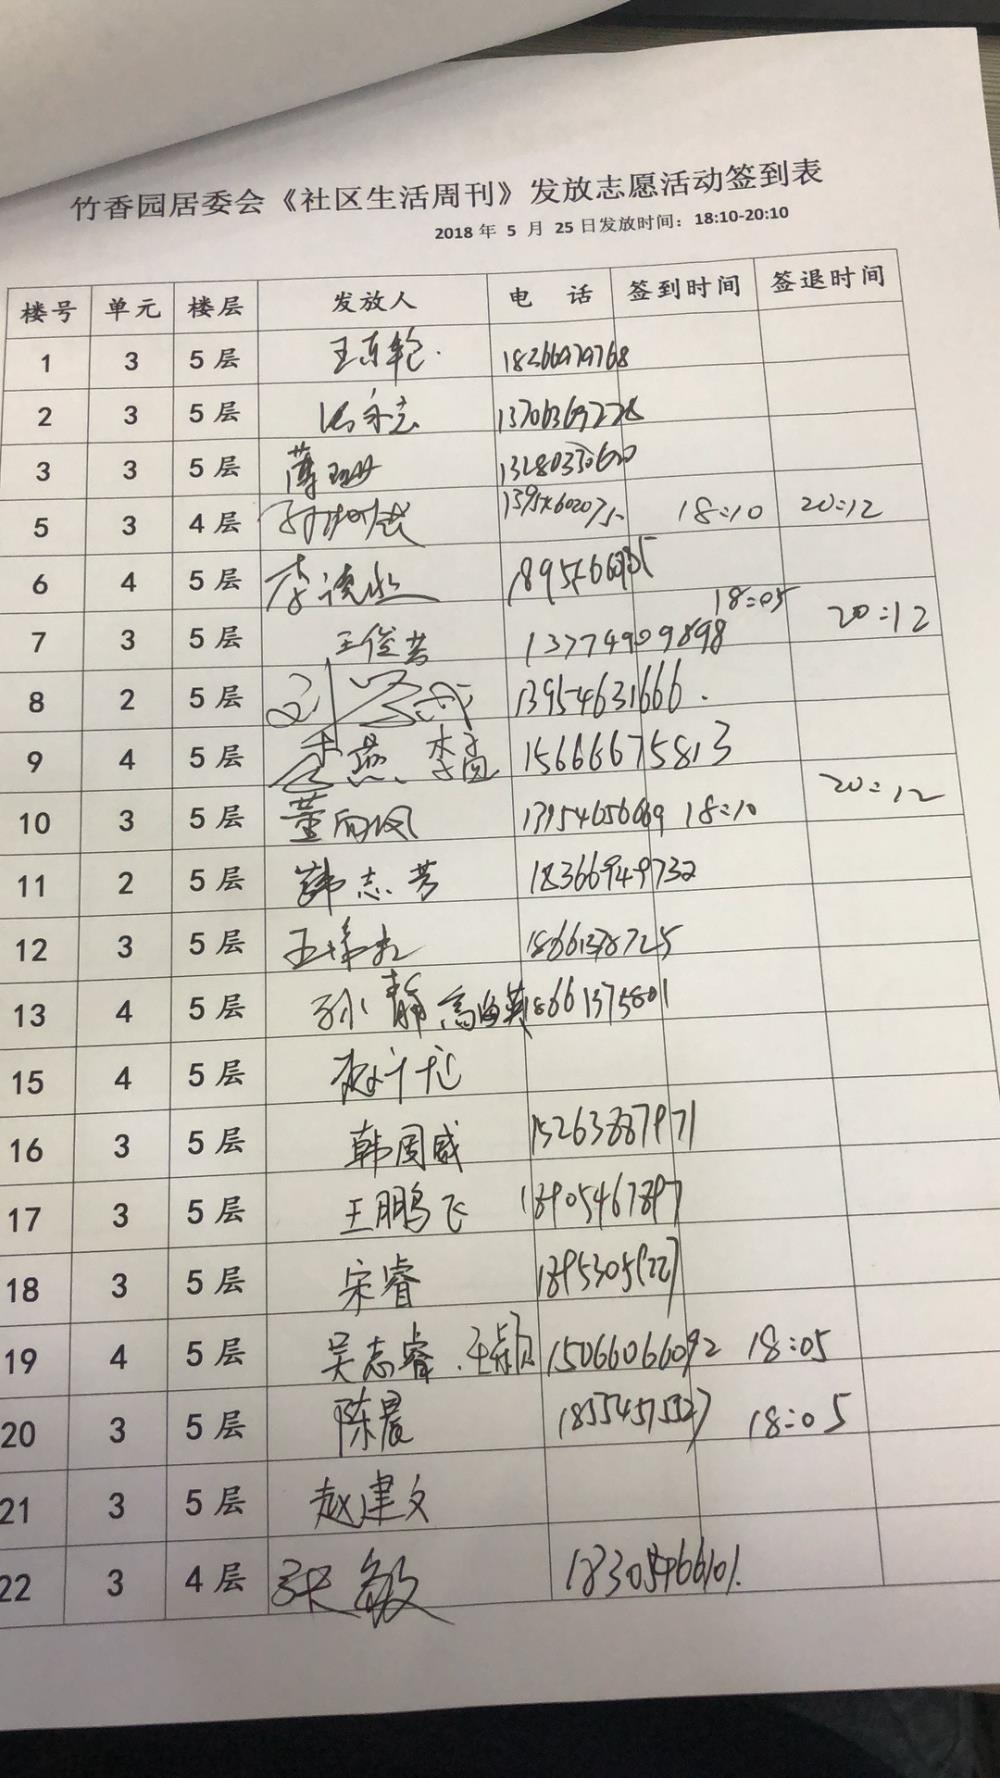 竹香园居委会《社区生活周刊》发放志愿活动签到表
2018 年 5 月 25 日发放时间：18:10-20:10
楼号 单元 楼层 发放人 电 话 签到时间 签退时间
1 3 5层 18366979768
2 3 5层 13706369228
3 3 5层 薄
5 3 4层 18:10 20:12
6 4 5层 李
7 3 5层 王俊芳 13774909898 18:05 20:12
8 2 5层 刘 13954631666.
9 4 5层 燕、李 15666675813
10 3 5层 董向凤 13954656069 18:10 20:12
11 2 5层 韩志芳 18366949732
12 3 5层 王 18661378725
13 4 5层 孙静 高海英 18661375801
15 4 5层 赵
16 3 5层 韩国威 15263887971
17 3 5层 王鹏飞 18905467897
18 3 5层 宋睿
19 4 5层 吴志睿.王颖 15066066092 18:05
20 3 5层 陈晨 18:05
21 3 5层 赵建文
22 3 4层 张敏 18305466101.